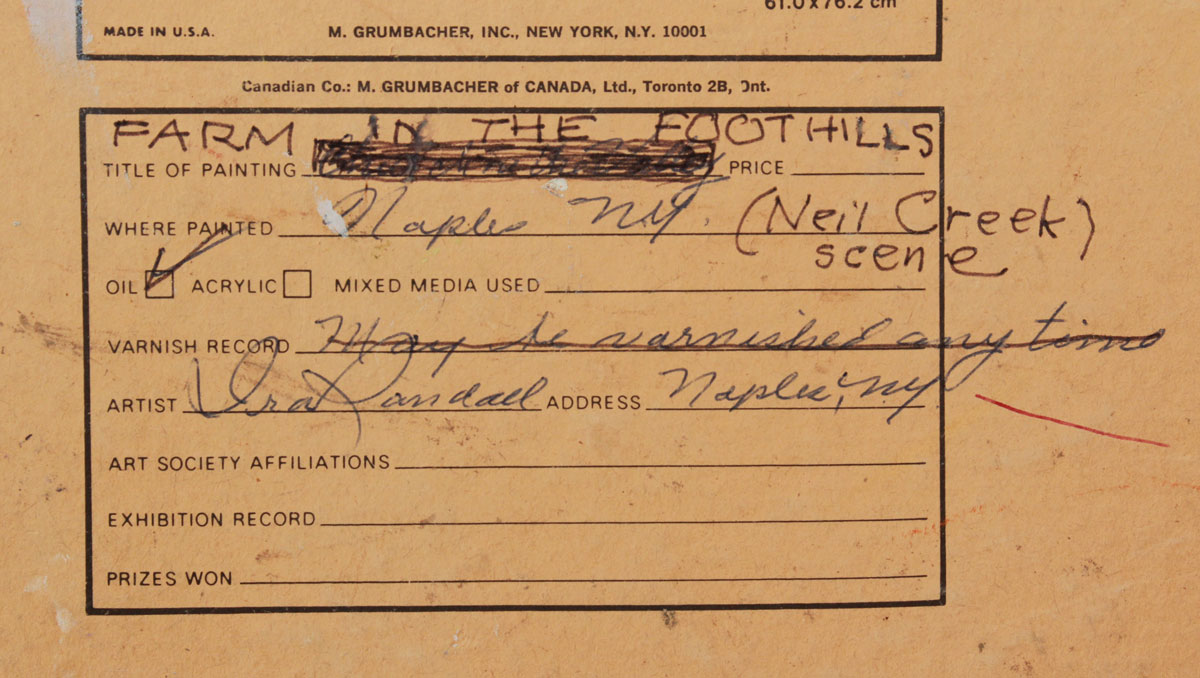 61.0 x 76.2 cm
MADE IN U.S.A. M. GRUMBACHER, INC., NEW YORK, N.Y. 10001
Canadian Co.: M. GRUMBACHER of CANADA, Ltd., Toronto 2B, Ont.
FARM IN THE FOOTHILLS
TITLE OF PAINTING PRICE
WHERE PAINTED Naples NY. (Neil Creek)
scene
OIL ACRYLIC MIXED MEDIA USED
VARNISH RECORD May be varnished any time
ARTIST Ira Randall ADDRESS Naples, NY
ART SOCIETY AFFILIATIONS
EXHIBITION RECORD
PRIZES WON